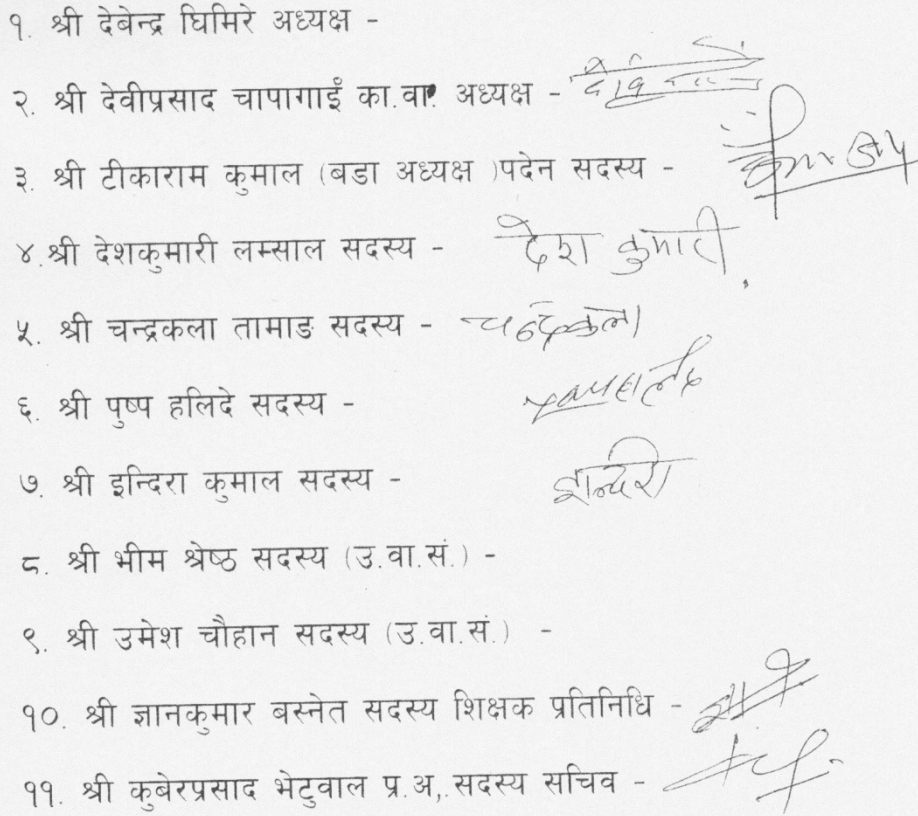 १. श्री देबेन्द्र घिमिरे अध्यक्ष -
२. श्री देवीप्रसाद चापागाईं का.वा. अध्यक्ष -
३. श्री टीकाराम कुमाल (बडा अध्यक्ष )पदेन सदस्य -
४.श्री देशकुमारी लम्साल सदस्य - देश कुमारी
५. श्री चन्द्रकला तामाङ सदस्य - चन्द्रकला
६. श्री पुष्प हलिदे सदस्य -
७. श्री इन्दिरा कुमाल सदस्य - इन्दिरा
८. श्री भीम श्रेष्ठ सदस्य (उ.वा.सं.) -
९. श्री उमेश चौहान सदस्य (उ.वा.सं.) -
१०. श्री ज्ञानकुमार बस्नेत सदस्य शिक्षक प्रतिनिधि -
११. श्री कुबेरप्रसाद भेटुवाल प्र.अ,.सदस्य सचिव -